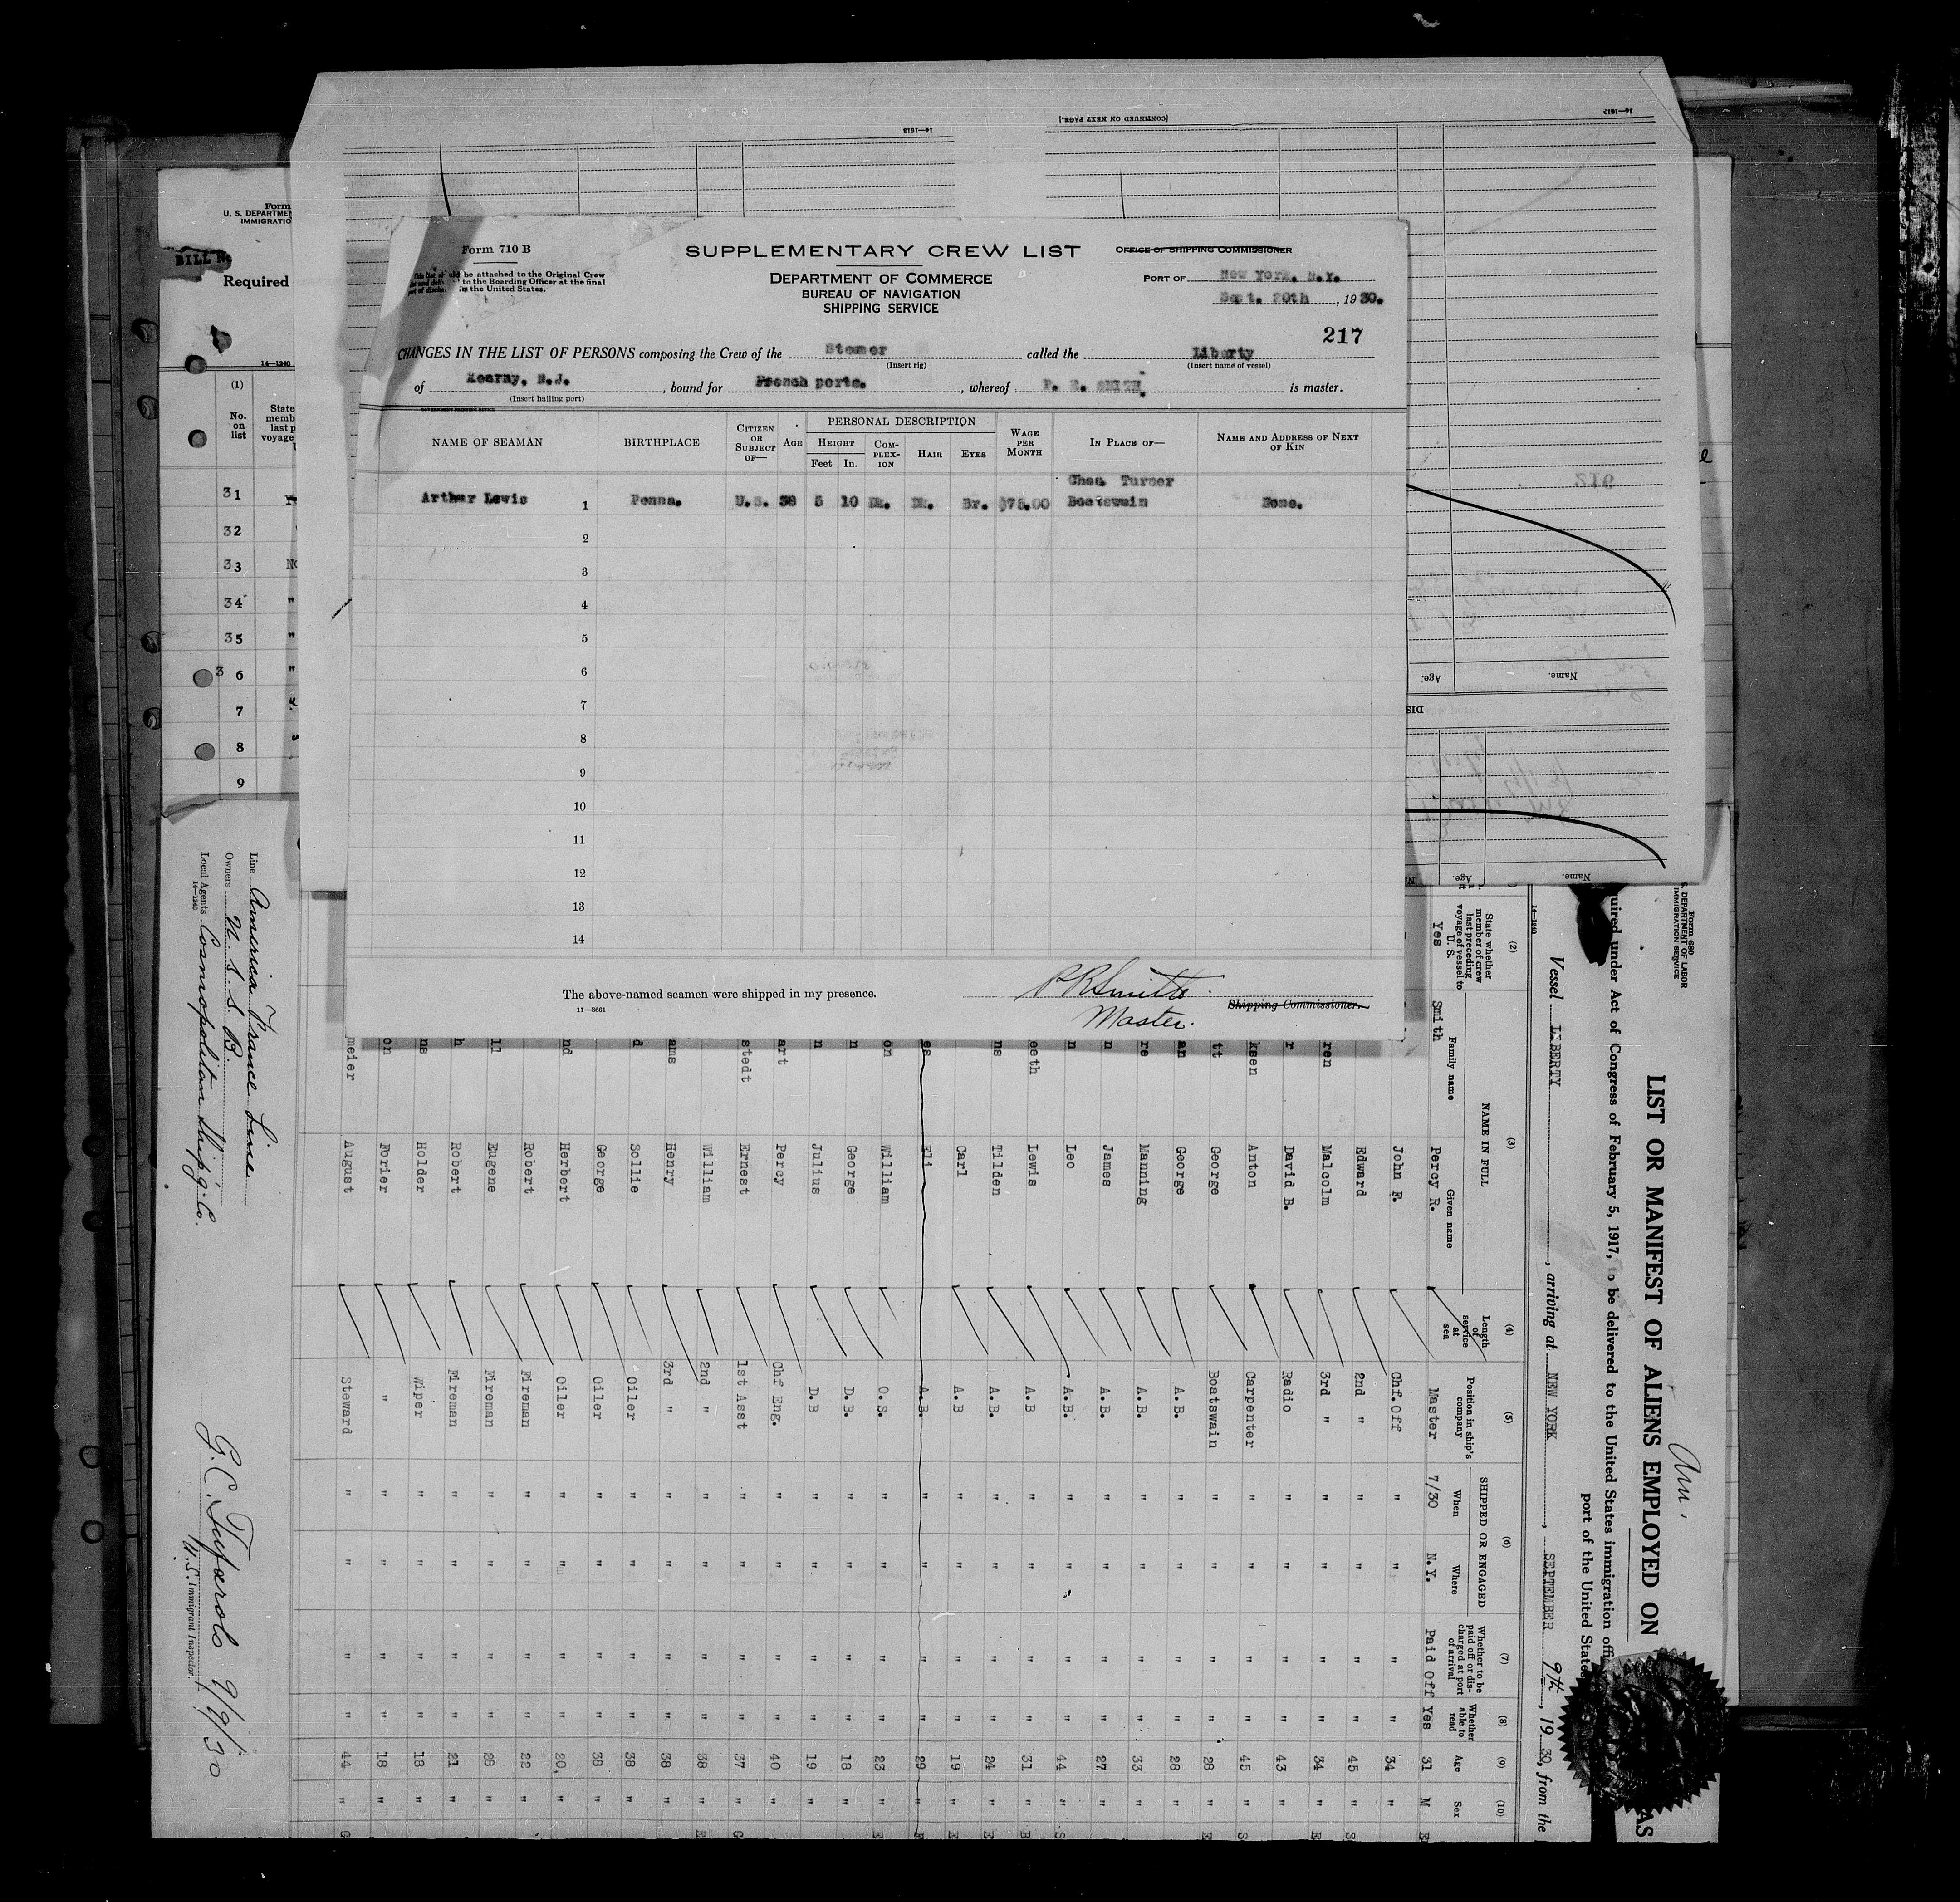 [CONTINUED ON NEXT PAGE.]
14—1613
14—1613
Form
U. S. DEPARTMEN
IMMIGRATIO
BILL N
Required
14—1240
(1)
No. on list
State
memb
last p
voyage
31
32
33
34
35
36
7
8
9
Form 710 B
be attached to the Original Crew
to the Boarding Officer at the final
the United States.
SUPPLEMENTARY CREW LIST
DEPARTMENT OF COMMERCE
BUREAU OF NAVIGATION
SHIPPING SERVICE
OFFICE OF SHIPPING COMMISSIONER
PORT OF New York, N.Y.
Sept. 20th, 1930.
217
CHANGES IN THE LIST OF PERSONS composing the Crew of the Steamer called the Liberty
(Insert rig) (Insert name of vessel)
of Kearny, N.J., bound for French ports., whereof P. R. SMITH, is master.
(Insert hailing port)
GOVERNMENT PRINTING OFFICE
NAME OF SEAMAN BIRTHPLACE CITIZEN OR SUBJECT OF— AGE PERSONAL DESCRIPTION WAGE PER MONTH IN PLACE OF— NAME AND ADDRESS OF NEXT OF KIN
HEIGHT COMPLEXION HAIR EYES
Feet In.
Chas. Turner
Arthur Lewis 1 Penna. U.S. 38 5 10 Dk. Dk. Br. $75.00 Boatswain None.
2
3
4
5
6
7
8
9
10
11
12
13
14
The above-named seamen were shipped in my presence.
11—8661
P R Smith
Shipping Commissioner.
Master.
216
Name.
Age.
DIS
Name.
Age.
Form 680
S. DEPARTMENT OF LABOR
IMMIGRATION SERVICE
14—1240
Am.
LIST OR MANIFEST OF ALIENS EMPLOYED ON
AS
uired under Act of Congress of February 5, 1917, to be delivered to the United States immigration offi
port of the United States
Vessel LIBERTY, arriving at NEW YORK, SEPTEMBER 9th, 1930, from the
(2) (3) (4) (5) (6) (7) (8) (9) (10)
State whether member of crew last preceding voyage of vessel to U. S.
NAME IN FULL
Family name Given name
Length of service at sea
Position in ship's company
SHIPPED OR ENGAGED
When Where
Whether to be paid off or discharged at port of arrival
Whether able to read
Age
Sex
Yes Smith Percy R. Master 7/30 N.Y. Paid Off Yes 31 M
John F. Chf.Off " " " " 34 "
Edward 2nd " " " " " 45 "
ren Malcolm 3rd " " " " " 34 "
r David B. Radio " " " " 43 "
ksen Anton Carpenter " " " " 45 "
tt George Boatswain " " " " 28 "
an George A.B. " " " " 28 "
re Manning A.B. " " " " 33 "
n James A.B. " " " " 27 "
n Leo A.B. " " " " 44 "
eeth Lewis A.B " " " " 31 "
ns Tilden A.B. " " " " 24 "
Carl A.B " " " " 19 "
es Eli A.B. " " " " 29 "
on William O.S. " " " " 23 "
n George D.B. " " " " 18 "
n Julius D.B " " " " 19 "
art Percy Chf Eng. " " " " 40 "
stedt Ernest 1st Asst " " " " 37 "
William 2nd " " " " " 38 "
ams Henry 3rd " " " " " 38 "
d Sollie Oiler " " " " 38 "
George Oiler " " " " 38 "
nd Herbert Oiler " " " " 20. "
Robert Fireman " " " " 22 "
ll Eugene Fireman " " " " 28 "
h Robert Fireman " " " " 21 "
ns Holder Wiper " " " " 18 "
on Forier " " " " " 18 "
meier August Steward " " " " 44 "
Line America France Line
Owners U. S. S. B.
Local Agents Cosmopolitan Ship'g. Co.
14—1240
9/9/30
U.S. Immigrant Inspector.